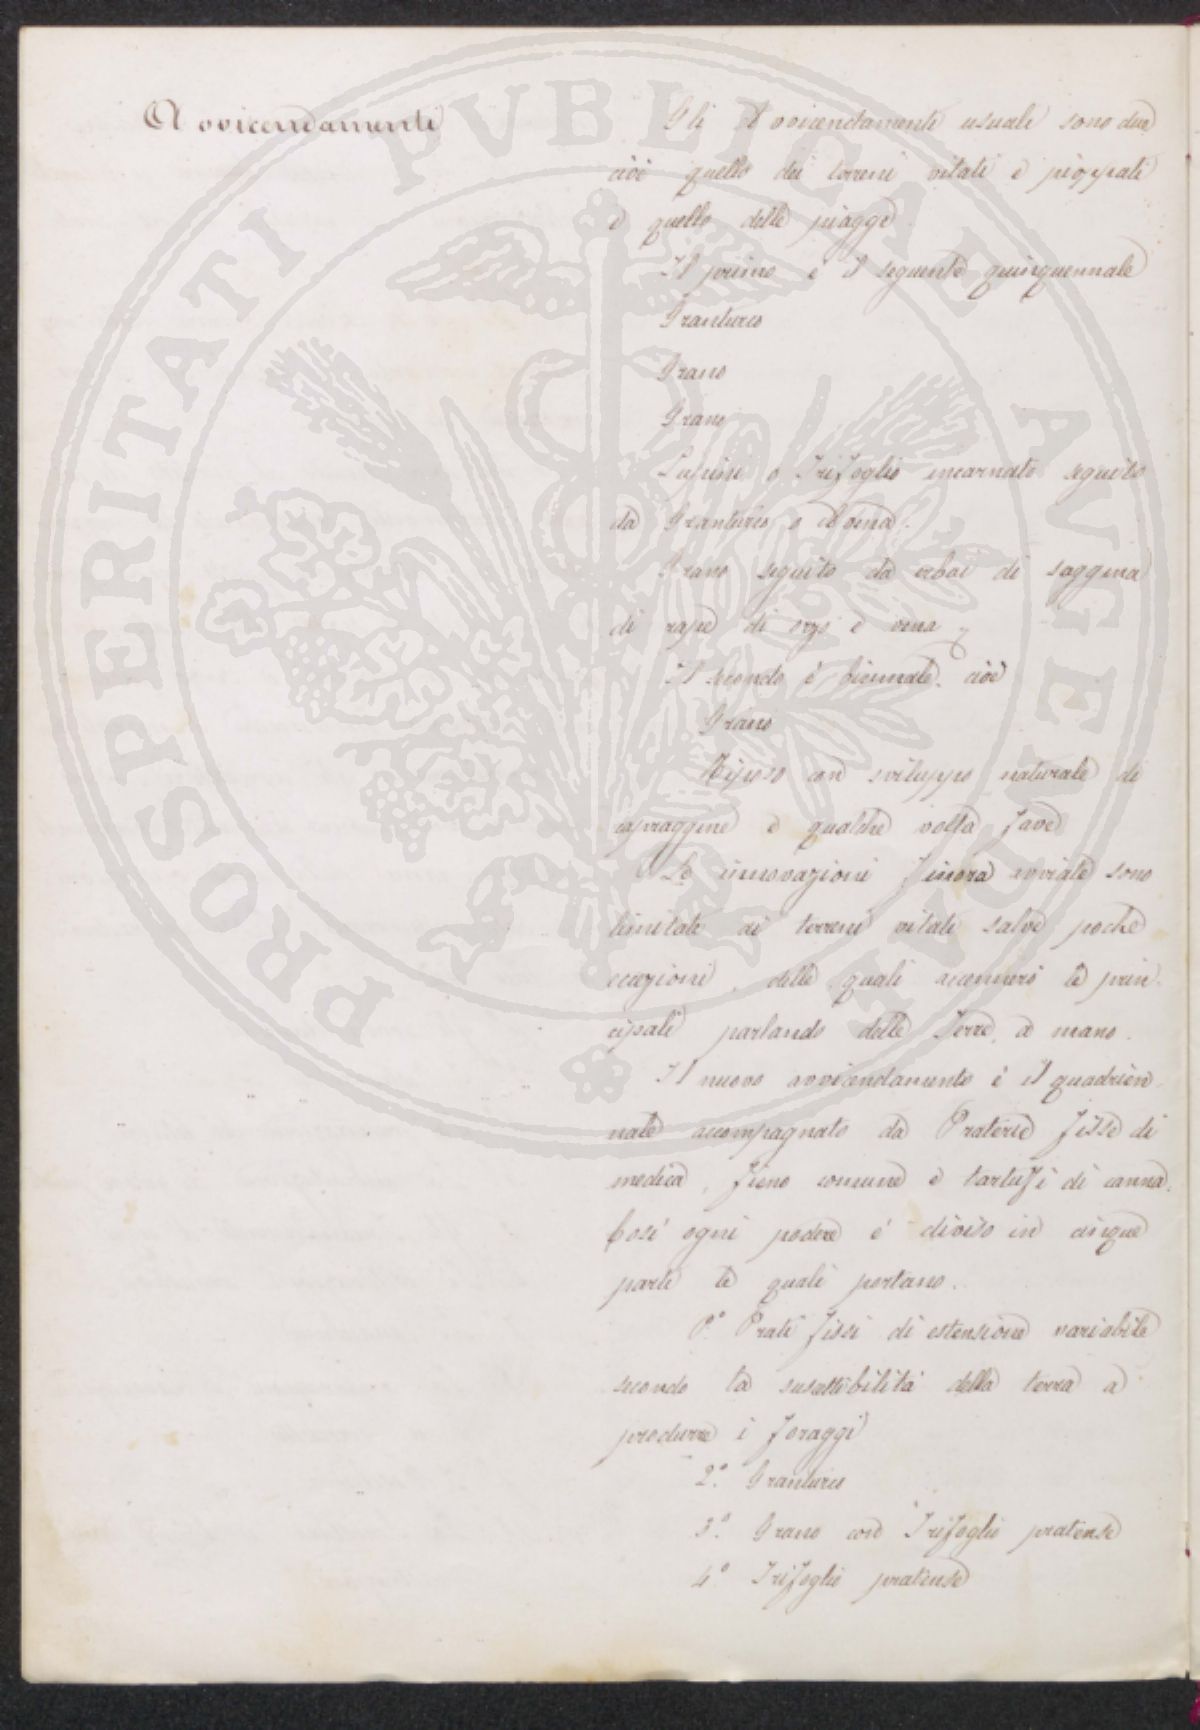 Avvicendamenti
Gli Avvicendamenti usuali sono due
cioè quello dei terreni vitati e pioppati
e quello delle piagge.
Il primo è il seguente quinquennale
Granturco
Grano
Grano
Lupini o Trifoglio incarnato seguito
da Granturco o Avena.
Grano seguito da erbai di saggina
di rape di orzo e vena
Il secondo è biennale. cioè
Grano
Riposo con sviluppo naturale di
capraggine e qualche volta fave
Le innovazioni finora avviate sono
limitate ai terreni vitati salve poche
eccezioni, delle quali accennerò le prin-
cipali parlando delle Terre a mano.
Il nuovo avvicendamento è il quadrien-
nale accompagnato da Praterie fisse di
medica, fieno comune e tartufi di canna.
Così ogni podere è diviso in cinque
parti le quali portano.
P.º Prati fissi di estensione variabile
secondo la suscettibilità della terra a
produrre i foraggi
2.º Granturco
3.º Grano con Trifoglio pratense
4.º Trifoglio pratense
PROSPERITATI PVBLICAE AVGENDAE